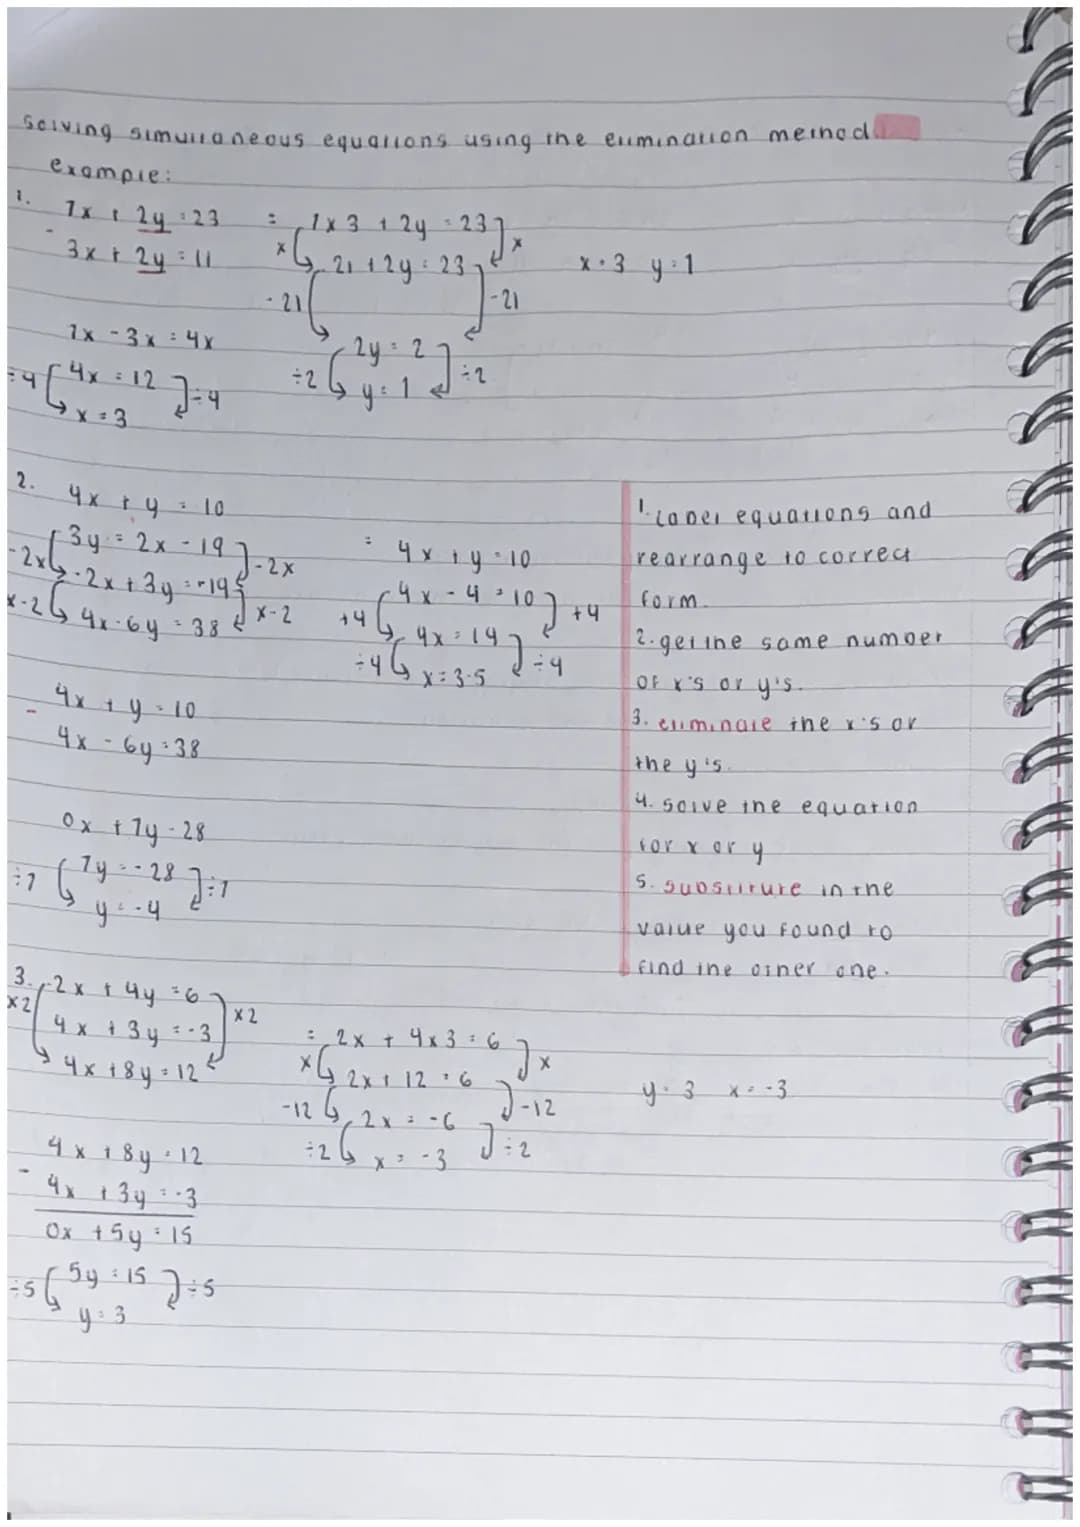 Solving simultaneous equations using the elimination method
example:
1.
7x + 2y = 23
- 3x + 2y = 11
7x - 3x = 4x
÷4 4x = 12 ÷4
x = 3
= 7 x 3 + 2y = 23
x 21 + 2y = 23 x
-21 -21
2y = 2
÷2 y = 1 ÷2
x = 3 y = 1
2.
4x + y = 10
3y = 2x - 19
-2x -2x + 3y = -19 -2x
x-2 4x - 6y = 38 x-2
4x + y = 10
- 4x - 6y = 38
0x + 7y - 28
÷7 7y = -28 ÷7
y = -4
= 4x + y = 10
4x - 4 = 10
+4 4x = 14 +4
÷4 x = 3.5 ÷4
1. Label equations and
rearrange to correct
form.
2. get the same number
of x's or y's.
3. eliminate the x's or
the y's.
4. solve the equation
for x or y
5. substitute in the
value you found to
find the other one.
3. 2x + 4y = 6
x2 4x + 3y = -3 x2
4x + 8y = 12
4x + 8y = 12
- 4x + 3y = -3
0x + 5y = 15
÷5 5y = 15 ÷5
y = 3
= 2x + 4x3 = 6
x 2x + 12 = 6 x
-12 2x = -6 -12
÷2 x = -3 ÷2
y = 3 x = -3